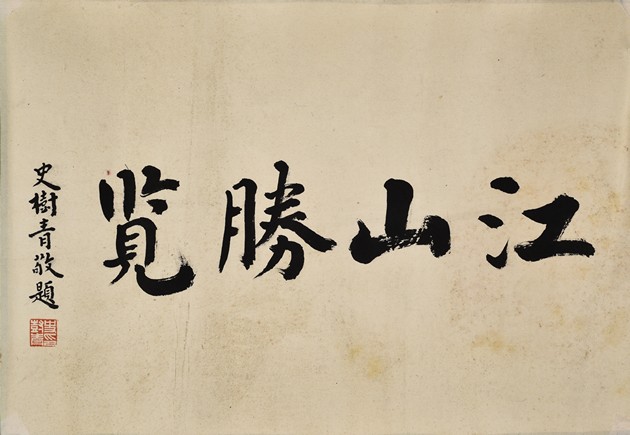 江山勝覧
史樹青敬題